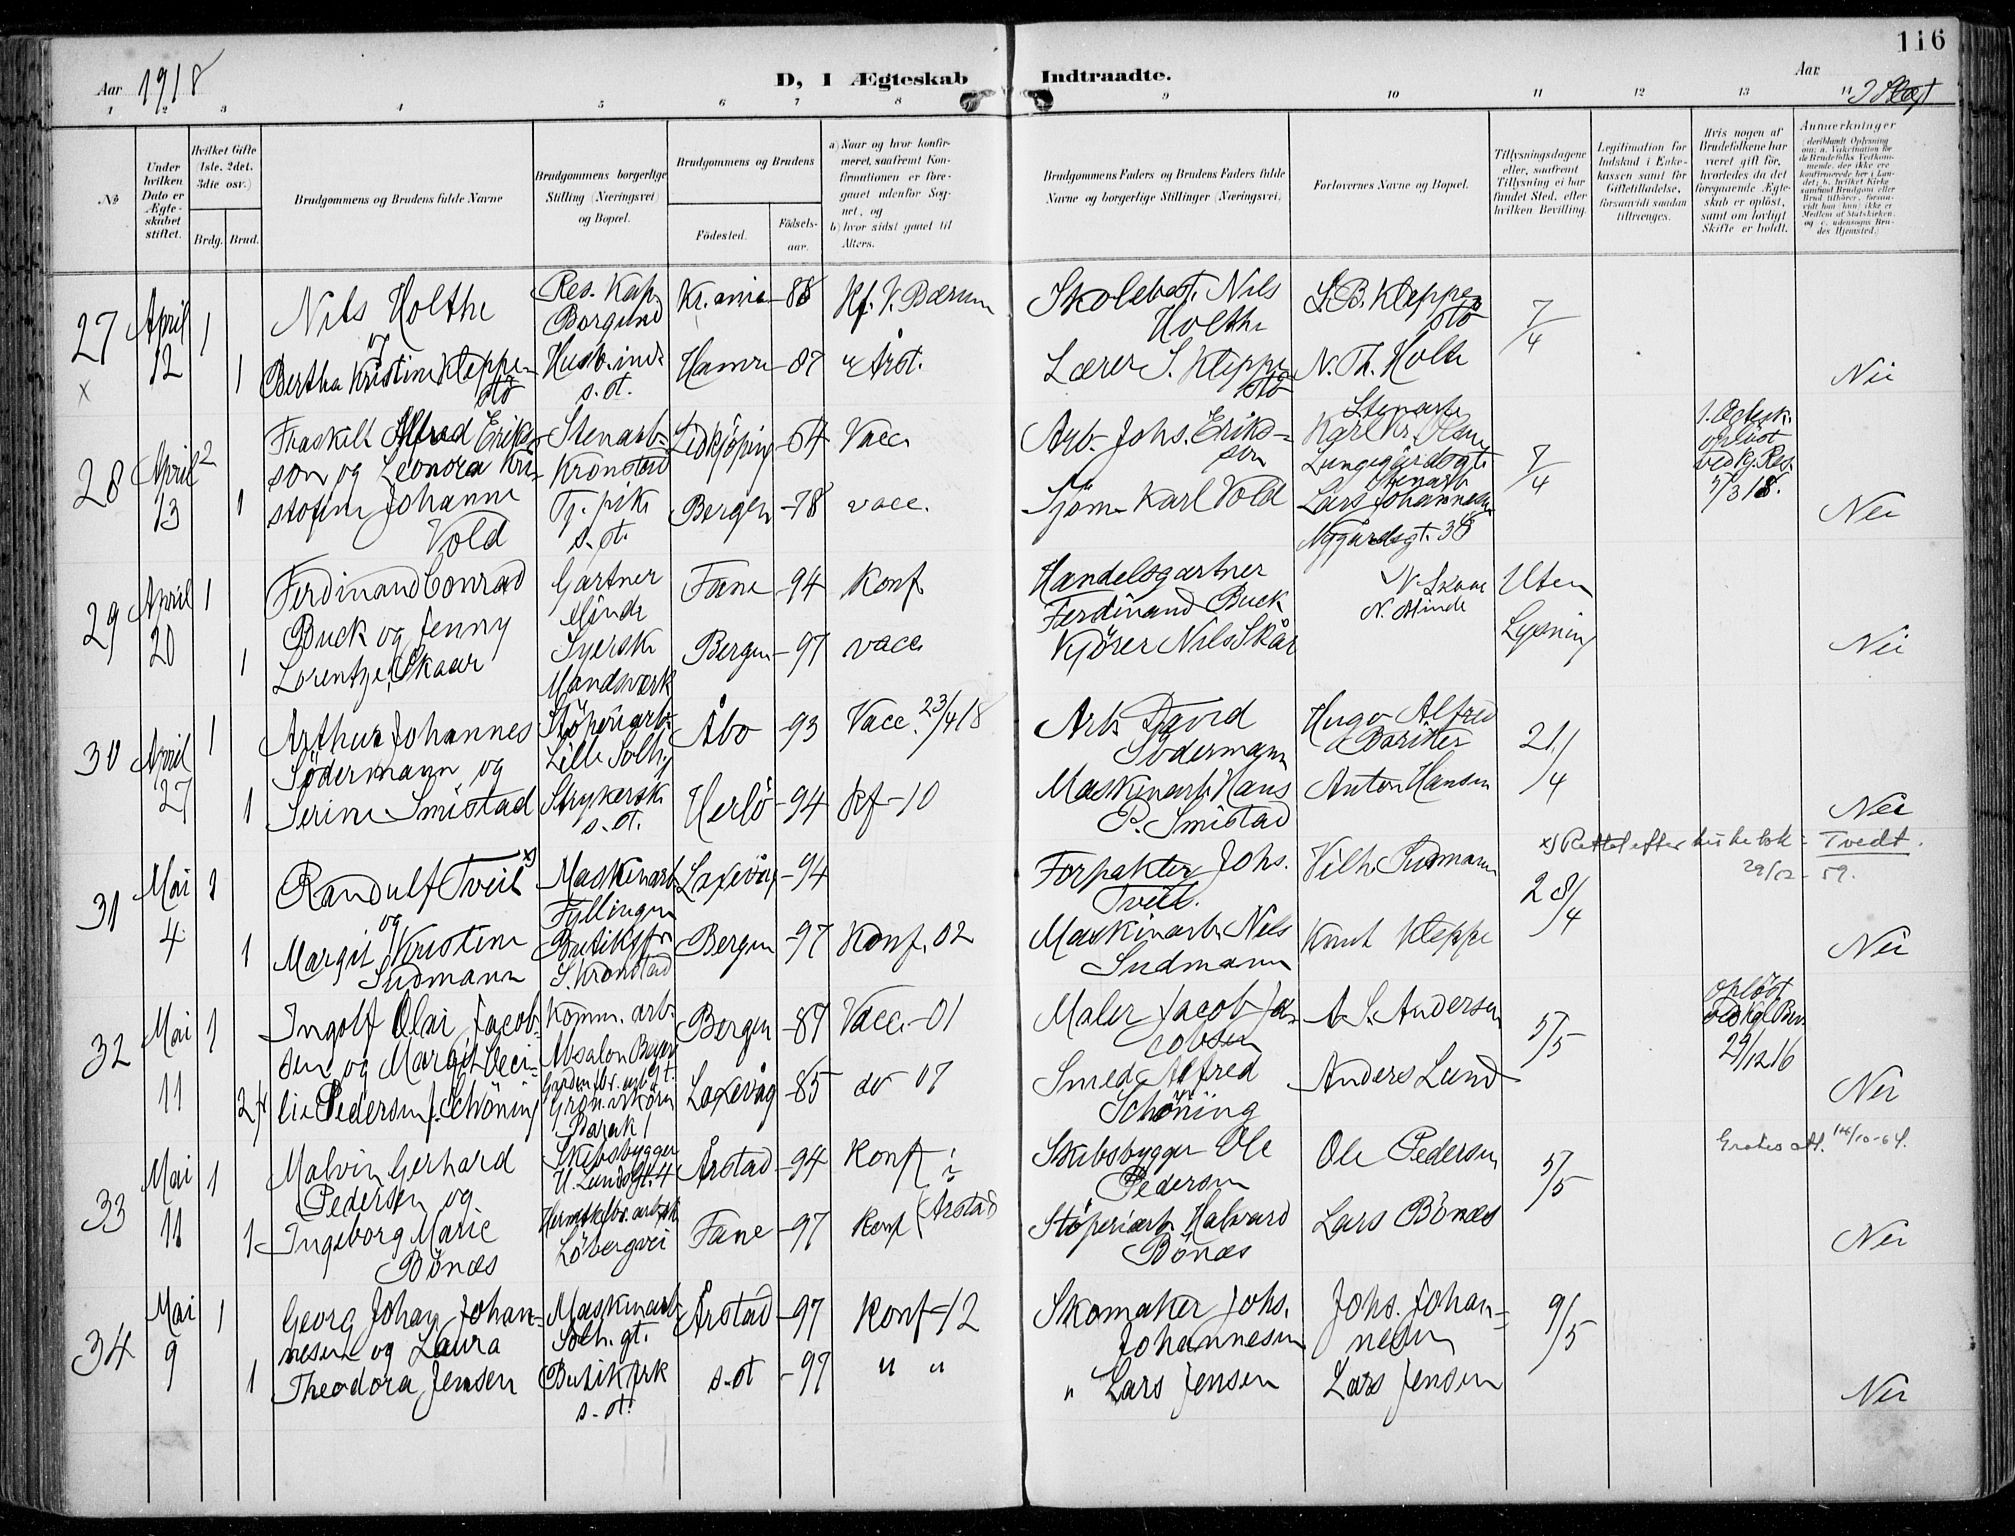 116
Aar 1918
D, I Ægteskab Indtraadte.
Aar
1 2 3 4 5 6 7 8 9 10 11 12 13 14
No
Under hvilken Dato er Ægteskabet stiftet.
Hvilket Gifte (1ste. 2det. 3die osv.)
Brdg. Brud.
Brudgommens og Brudens fulde Navne
Brudgommens borgerlige Stilling (Næringsvei) og Bopæl.
Brudgommens og Brudens
Födested.
Födselsaar.
a) Naar og hvor konfirmeret, saafremt Konfirmationen er foregaaet udenfor Sognet, og
b) hvor sidst gaaet til Alters.
Brudgommens Faders og Brudens Faders fulde Navne og borgerlige Stillinger (Næringsvei)
Forlovernes Navne og Bopæl.
Tillysningsdagene eller, saafremt Tillysning ei har fundet Sted, efter hvilken Bevilling.
Legitimation for Indskud i Enkekassen samt for Giftetilladelse, forsaavidt saadan tiltrænges.
Hvis nogen af Brudefolkene har været gift för, hvorledes da det foregaaende Ægteskab er oplöst, samt om lovligt Skifte er holdt.
Anmærkninger
27 April 12 1 Nils Holthe Res. Kap. Borgund Kr.ania -88 Kf. V. Bærum Skolebest. Nils Holthe S. B. Kleppestö 7/4
x 1 og Bertha Kristine Kleppestö Husb.ind. s. st. Hamre -87 " Årst. Lærer S. Kleppestö N. Th. Holthe Nei
28 April 13 2 Fraskilt Alfred Erikson og Leonora Kristofine Johanne Vold Stenarb. Kronstad Lidkjöping -64 Vacc. Arb. Johs. Erikson Stenarb. Karl Kr. Olsen Lungegårdsgt. 7/4 1. Ægtesk. oplöst ved kg. Res. 5/3 18.
1 Tj. pike s. st. Bergen -78 vacc. Sjöm. Karl Vold Stenarb. Lars Johannesen Nygårdsgt. 38 Nei
29 April 20 1 Ferdinand Conrad Buck og Jenny Lorentze Skaar Gartner Minde Fane -94 Konf. Handelsgartner Ferdinand Buck N. Skaar N. Minde Uten Lysning
1 Syerske Mandsværk Bergen -97 vacc. Kjörer Nils Skår Nei
30 April 27 1 Arthur Johannes Södermann og Serine Smistad Støperiarb. Lille Solh. Åbo -93 Vacc. 23/4 18 Arb. David Södermann Hugo Alfred 21/4
1 Strykersk s. st. Herlö -94 Kf -10 Maskinarb. Hans P. Smistad Anton Hansen Nei
x) Rettet efter kirkebok: Tvedt. 29/12 - 59.
31 Mai 4 1 Randulf Tveit x) Maskinarb Fyllingen Laxevåg -94 Forpakter Johs. Tveit. Vilh. Sudmann 28/4
1 og Margit Kristine Sudmann Butiksfr. S. Kronstad Bergen -97 Konf. 02 Maskinarb. Nils Sudmann Knut Kleppe Nei
32 Mai 11 1 Ingolf Olai Jacobsen og Margit Cecilie Pedersen f. Schöning Komm. arb. Absalon Beyers gt. Bergen -87 Vacc. -01 Maler Jacob Jacobsen A. S. Andersen 5/5 oplöst ved Kgl. Bev. 29/12 16
2 Barak 1 Laxevåg -85 do 07 Smed Alfred Schöning Anders Lund Nei
33 Mai 11 1 Malvin Gerhard Pedersen og Ingeborg Marie Bönæs Skibsbygger U. Lundsgt. 4 Årstad -94 Konf i Skibsbygger Ole Pedersen Ole Pedersen 5/5 Gratis att. 14/10-64.
1 Löbergsvei Fane -97 Konf (Årstad Støperiarb Halvard Bönæs Lars Bönæs Nei
34 Mai 9 1 Georg Johan Johannesen og Laura Theodora Jensen Maskinarb Solh. gt. Årstad -97 Konf -12 Skomaker Johs. Johannesen Johs. Johannesen 9/5
1 Butikfrk s. st. s. st -99 " " " Lars Jensen Lars Jensen Nei